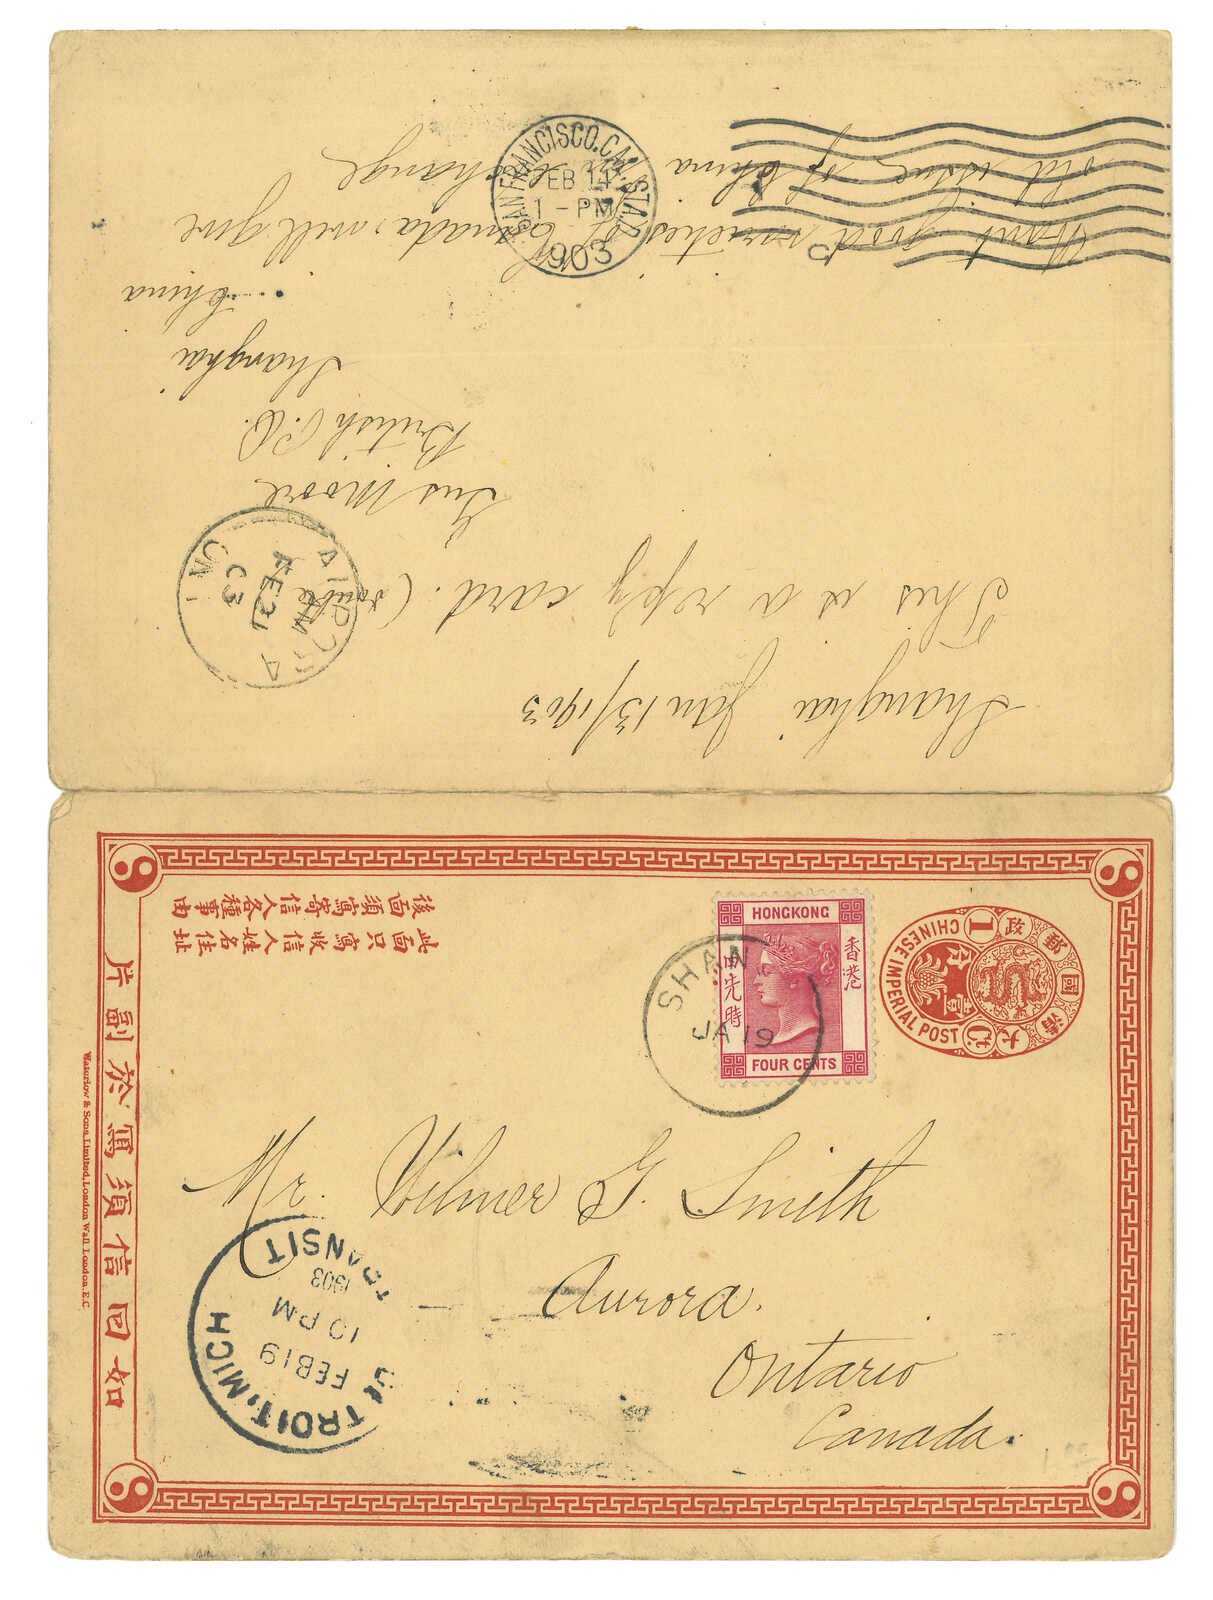 Shanghai Jan 13/1903
This is a reply card. (
Gus Moore
British P.O.
Shanghai
China
Want good varieties of Canada, will give
old issue of China in exchange
SAN FRANCISCO, CAL. STA. D.
FEB 14
1 - PM
1903
AURORA
AM
FE 21
03
ONT
大清國郵政
CHINESE IMPERIAL POST
1 Ct
壹分
HONGKONG
香港
FOUR CENTS
SHAN
JA 19
此面只寫收信人姓名住址
後面須寫寄信人各種事由
如回信須寫於副片
Waterlow & Sons Limited, London Wall London, E.C
Mr. Wilmer G. Smith
Aurora.
Ontario
Canada.
DETROIT, MICH
FEB 19
10 PM
1903
TRANSIT